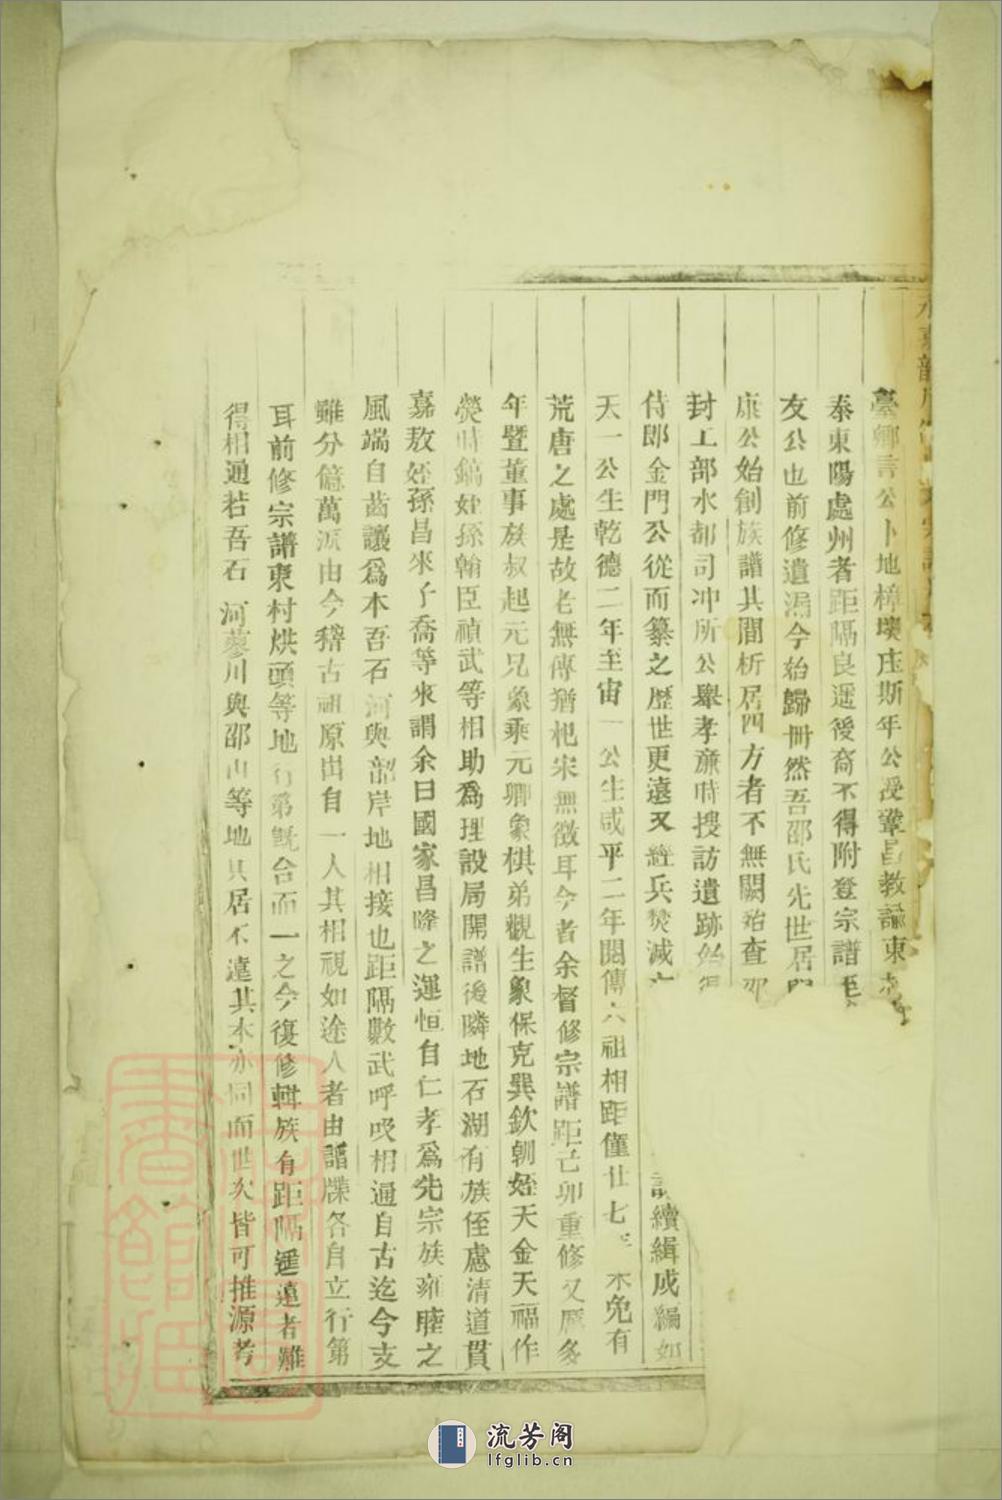 臺卿言公卜地樟壊庄斯年公授鞏昌教諭東
泰東陽處州者距隔良遥後裔不得附登宗譜
友公也前修遺漏今始歸冊然吾邵氏先世居
康公始創族譜其間析居四方者不無闕始查
封工部水都司冲所公舉孝亷時搜訪遺跡始
侍郎金門公從而纂之歷世更遠又經兵焚滅 續緝成編如
天一公生乾德二年至宙一公生咸平二年閱傳六祖相距僅廿七 未免有
荒唐之處是故老無傳猶杞宋無徵耳今者余督修宗譜距己卯重修又歷多
年暨董事族叔起元兄象乘元卿象棋弟觀生象保克巽欽朝姪天金天福作
熒時鎬姪孫翰臣禎武等相助爲理設局開譜後隣地石湖有族侄處清道貫
嘉敖姪孫昌來子喬等來謂余曰國家昌隆之運恒自仁孝爲先宗族雍睦之
風端自齒讓爲本吾石河與韶岸地相接也距隔數武呼吸相通自古迄今支
雖分億萬派由今稽古祖原出自一人其相視如途人者由譜牒各自立行第
耳前修宗譜東村烘頭等地行弟旣合而一之今復修輯族有距隔遥遠者雖
得相通若吾石河蓼川與邵山等地具居不遠其本亦同而世次皆可推源考
流芳阁
lfglib.cn